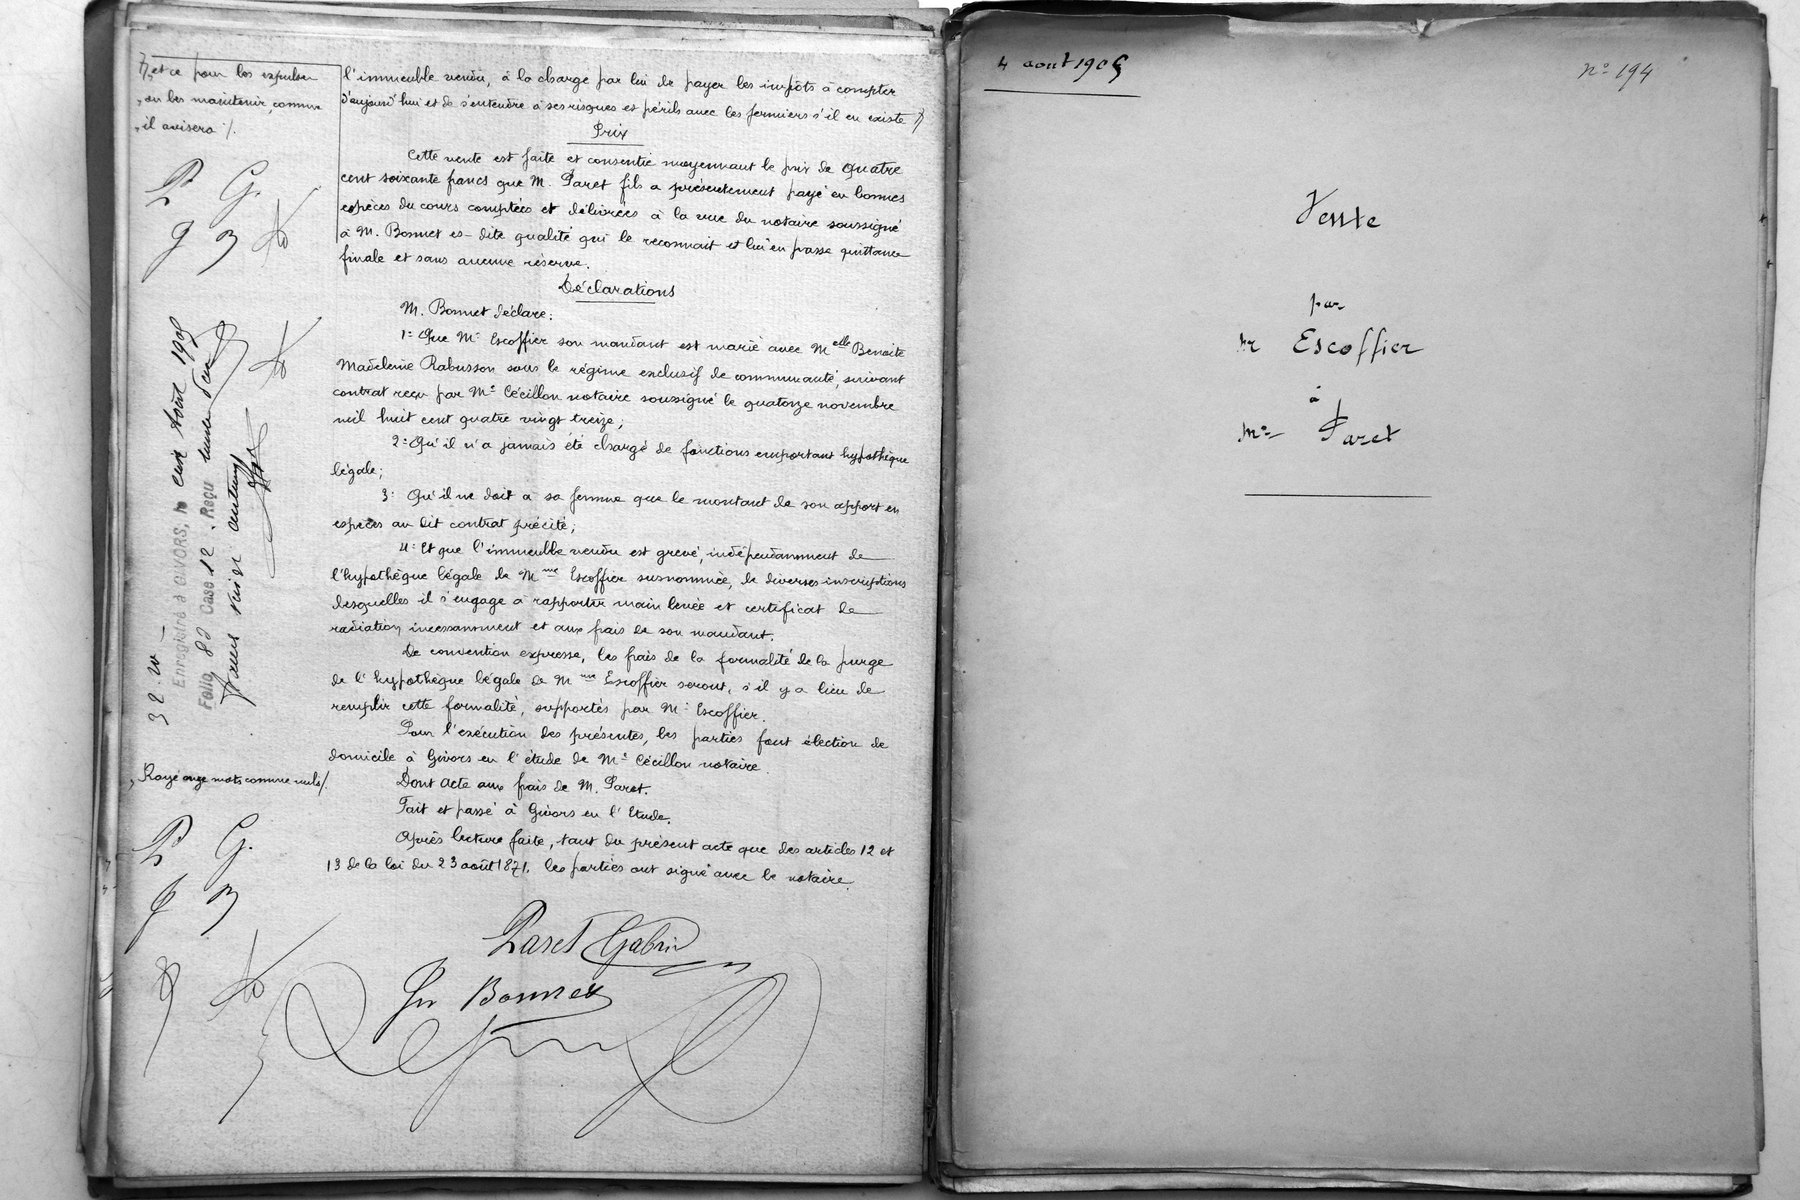 et ce pour les expulser
ou les maintenir, comme
il avisera ./.
P G.
g B
Enregistré à GIVORS, le cinq Août 190
Folio 82 Case 12. Reçu
32.20
Rayé onze mots comme nuls ./.
P G.
g B
l'immeuble vendu, à la charge par lui de payer les impôts à compter
d'aujourd'hui et de s'entendre à ses risques et périls avec les fermiers s'il en existe
Prix
Cette vente est faite et consentie moyennant le prix de Quatre
cent soixante francs que M. Paret fils a présentement payé en bonnes
espèces du cours comptées et délivrées à la vue du notaire soussigné
à M. Bonnet es-dite qualité qui le reconnait et lui en passe quittance
finale et sans aucune réserve.
Déclarations
M. Bonnet déclare:
1º Que Mr Escoffier son mandant est marié avec Melle Benoite
Madeleine Rabusson sous le régime exclusif de communauté, suivant
contrat reçu par Me Cécillon notaire soussigné le quatorze novembre
mil huit cent quatre vingt treize;
2º Qu'il n'a jamais été chargé de fonctions emportant hypothèque
légale;
3º Qu'il ne doit à sa femme que le montant de son apport en
espèces au dit contrat précité;
4º Et que l'immeuble vendu est grevé, indépendamment de
l'hypothèque légale de Mme Escoffier susnommée, de diverses inscriptions
desquelles il s'engage à rapporter main levée et certificat de
radiation incessamment et aux frais de son mandant.
De convention expresse, les frais de la formalité de la purge
de l'hypothèque légale de Mme Escoffier seront, s'il y a lieu de
remplir cette formalité, supportés par Mr Escoffier.
Pour l'exécution des présentes, les parties font élection de
domicile à Givors en l'étude de Me Cécillon notaire.
Dont Acte aux frais de M. Paret.
Fait et passé à Givors en l'Etude.
Après lecture faite, tant du présent acte que des articles 12 et
13 de la loi du 23 août 1871, les parties ont signé avec le notaire.
Paret Gabriel
Bonnet
4 août 1905
Nº 194
Vente
par
Mr Escoffier
à
Mr Paret